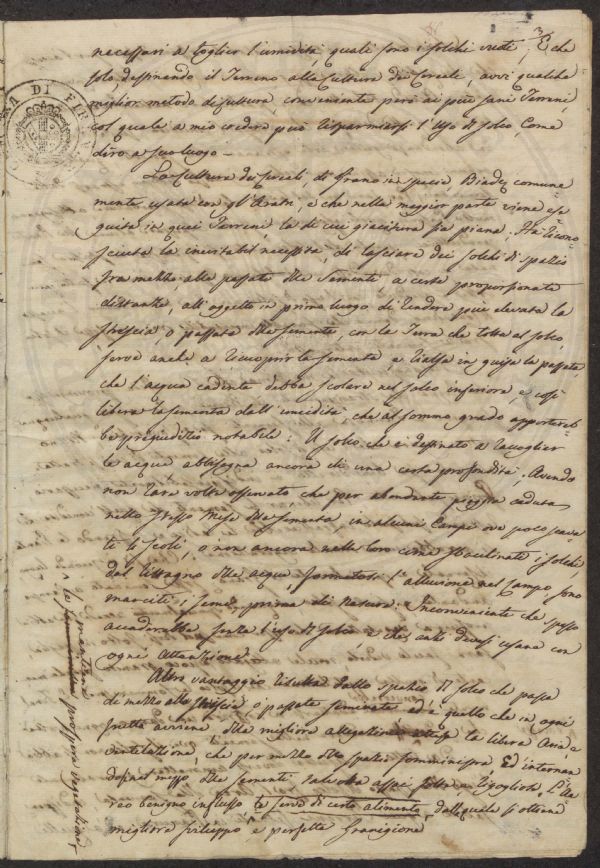 3
necessari a toglier l'umidità, quali sono i solchi vuoti; E che
solo, destinando il Terreno alla Cultura dei Cereali, avvi qualche
miglior metodo di Cultura, conveniente però ai più sani Terreni,
col quale a mio credere può risparmiarsi l'Uso di solco Come
dirò a suo luogo —
La Cultura dei Cereali, di Grano in specie, Biade comune
mente usata con gl'Aratri, e che nella maggior parte viene ese
guita in quei Terreni la di cui giacitura sia piana, ha ricono
sciuta la inevitabil necessità, di lasciare dei solchi di spazio
framezzo alle passate delle semente, a certe proporzionate
distanze, all'oggetto in primo luogo di rendere più elevata la
, o passata della semente, con la Terra che tolta al solco,
serve anche a ricuoprir la sementa, e rialza in guisa la passata,
che l'acqua cadente debba scolare nel solco inferiore, e così
libera la sementa dall'umidità, che al sommo grado apportereb
be pregiuditio notabile: Il solco che è destinato a raccoglier
le acque abbisogna ancora di una certa profondità; Avendo
non rare volte osservato che per abondante pioggia caduta
nello stesso Mese della sementa in alcuni Campi ove poco scava
te le scoli, o non ancora nelle loro cime i solchi,
dal ristagno delle acque, formatosi l'alluvione nel Campo, sono
marciti i semi, prima di nascere: Inconveniente che spesso
accaderebbe senza l'uso di solco, e che cate devesi usare con
ogni attenzione.
Altro vantaggio risulta dallo spazio del solco che passa
di mezzo alle o passate seminate ed è quello che in ogni
avviene, della migliore la libera Aria, e
ventilazione, che per mezzo dello spazio somministra, Ed internan
dosi nel mezzo delle sementi assai folte e rigogliose. L'Ae
reo benigno influsso, le serve di certo alimento, dalle quali si ottiene
migliore sviluppo e perfetta granigione
mantiene
prospera vegetazione
DI FIR